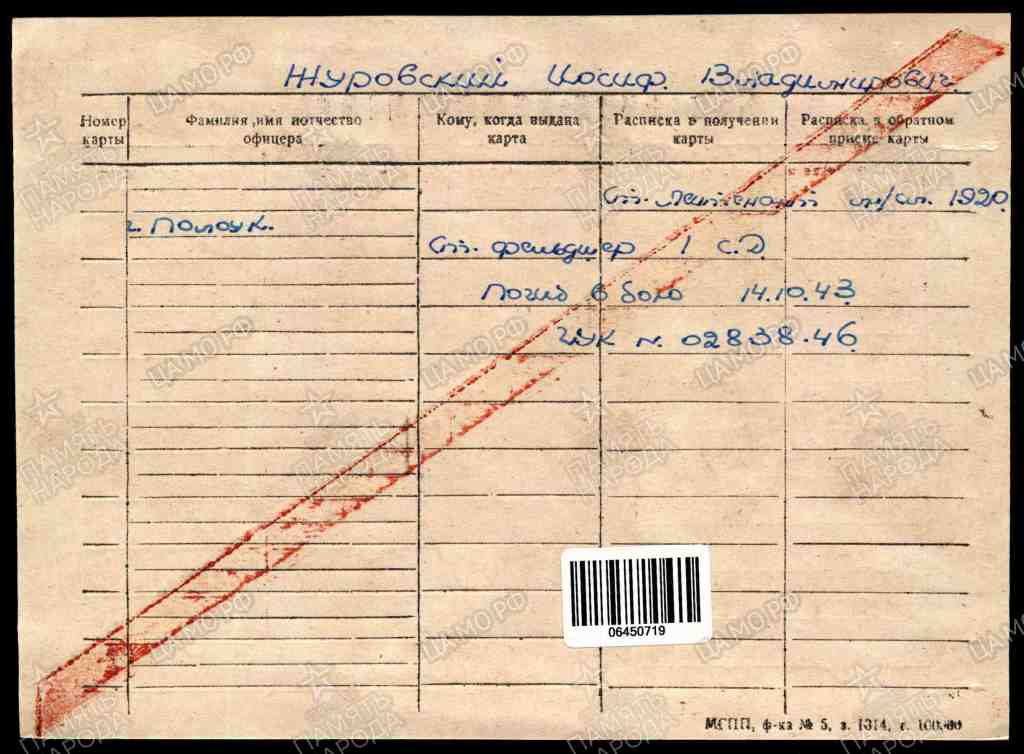 Журовский Иосиф Владимирович.
Номер карты
Фамилия, имя и отчество офицера
Кому, когда выдана карта
Расписка в получении карты
Расписка в обратном приеме карты
ст. лейтенант м/сл. 1920
г. Полоцк.
Ст. фельдшер 1 с.д
Погиб в бою 14.10.43
ГУК п. 02838.46
06450719
МСПП, ф-ка № 5, з. 1314, с.
ЦАМО.РФ
ПАМЯТЬ НАРОДА